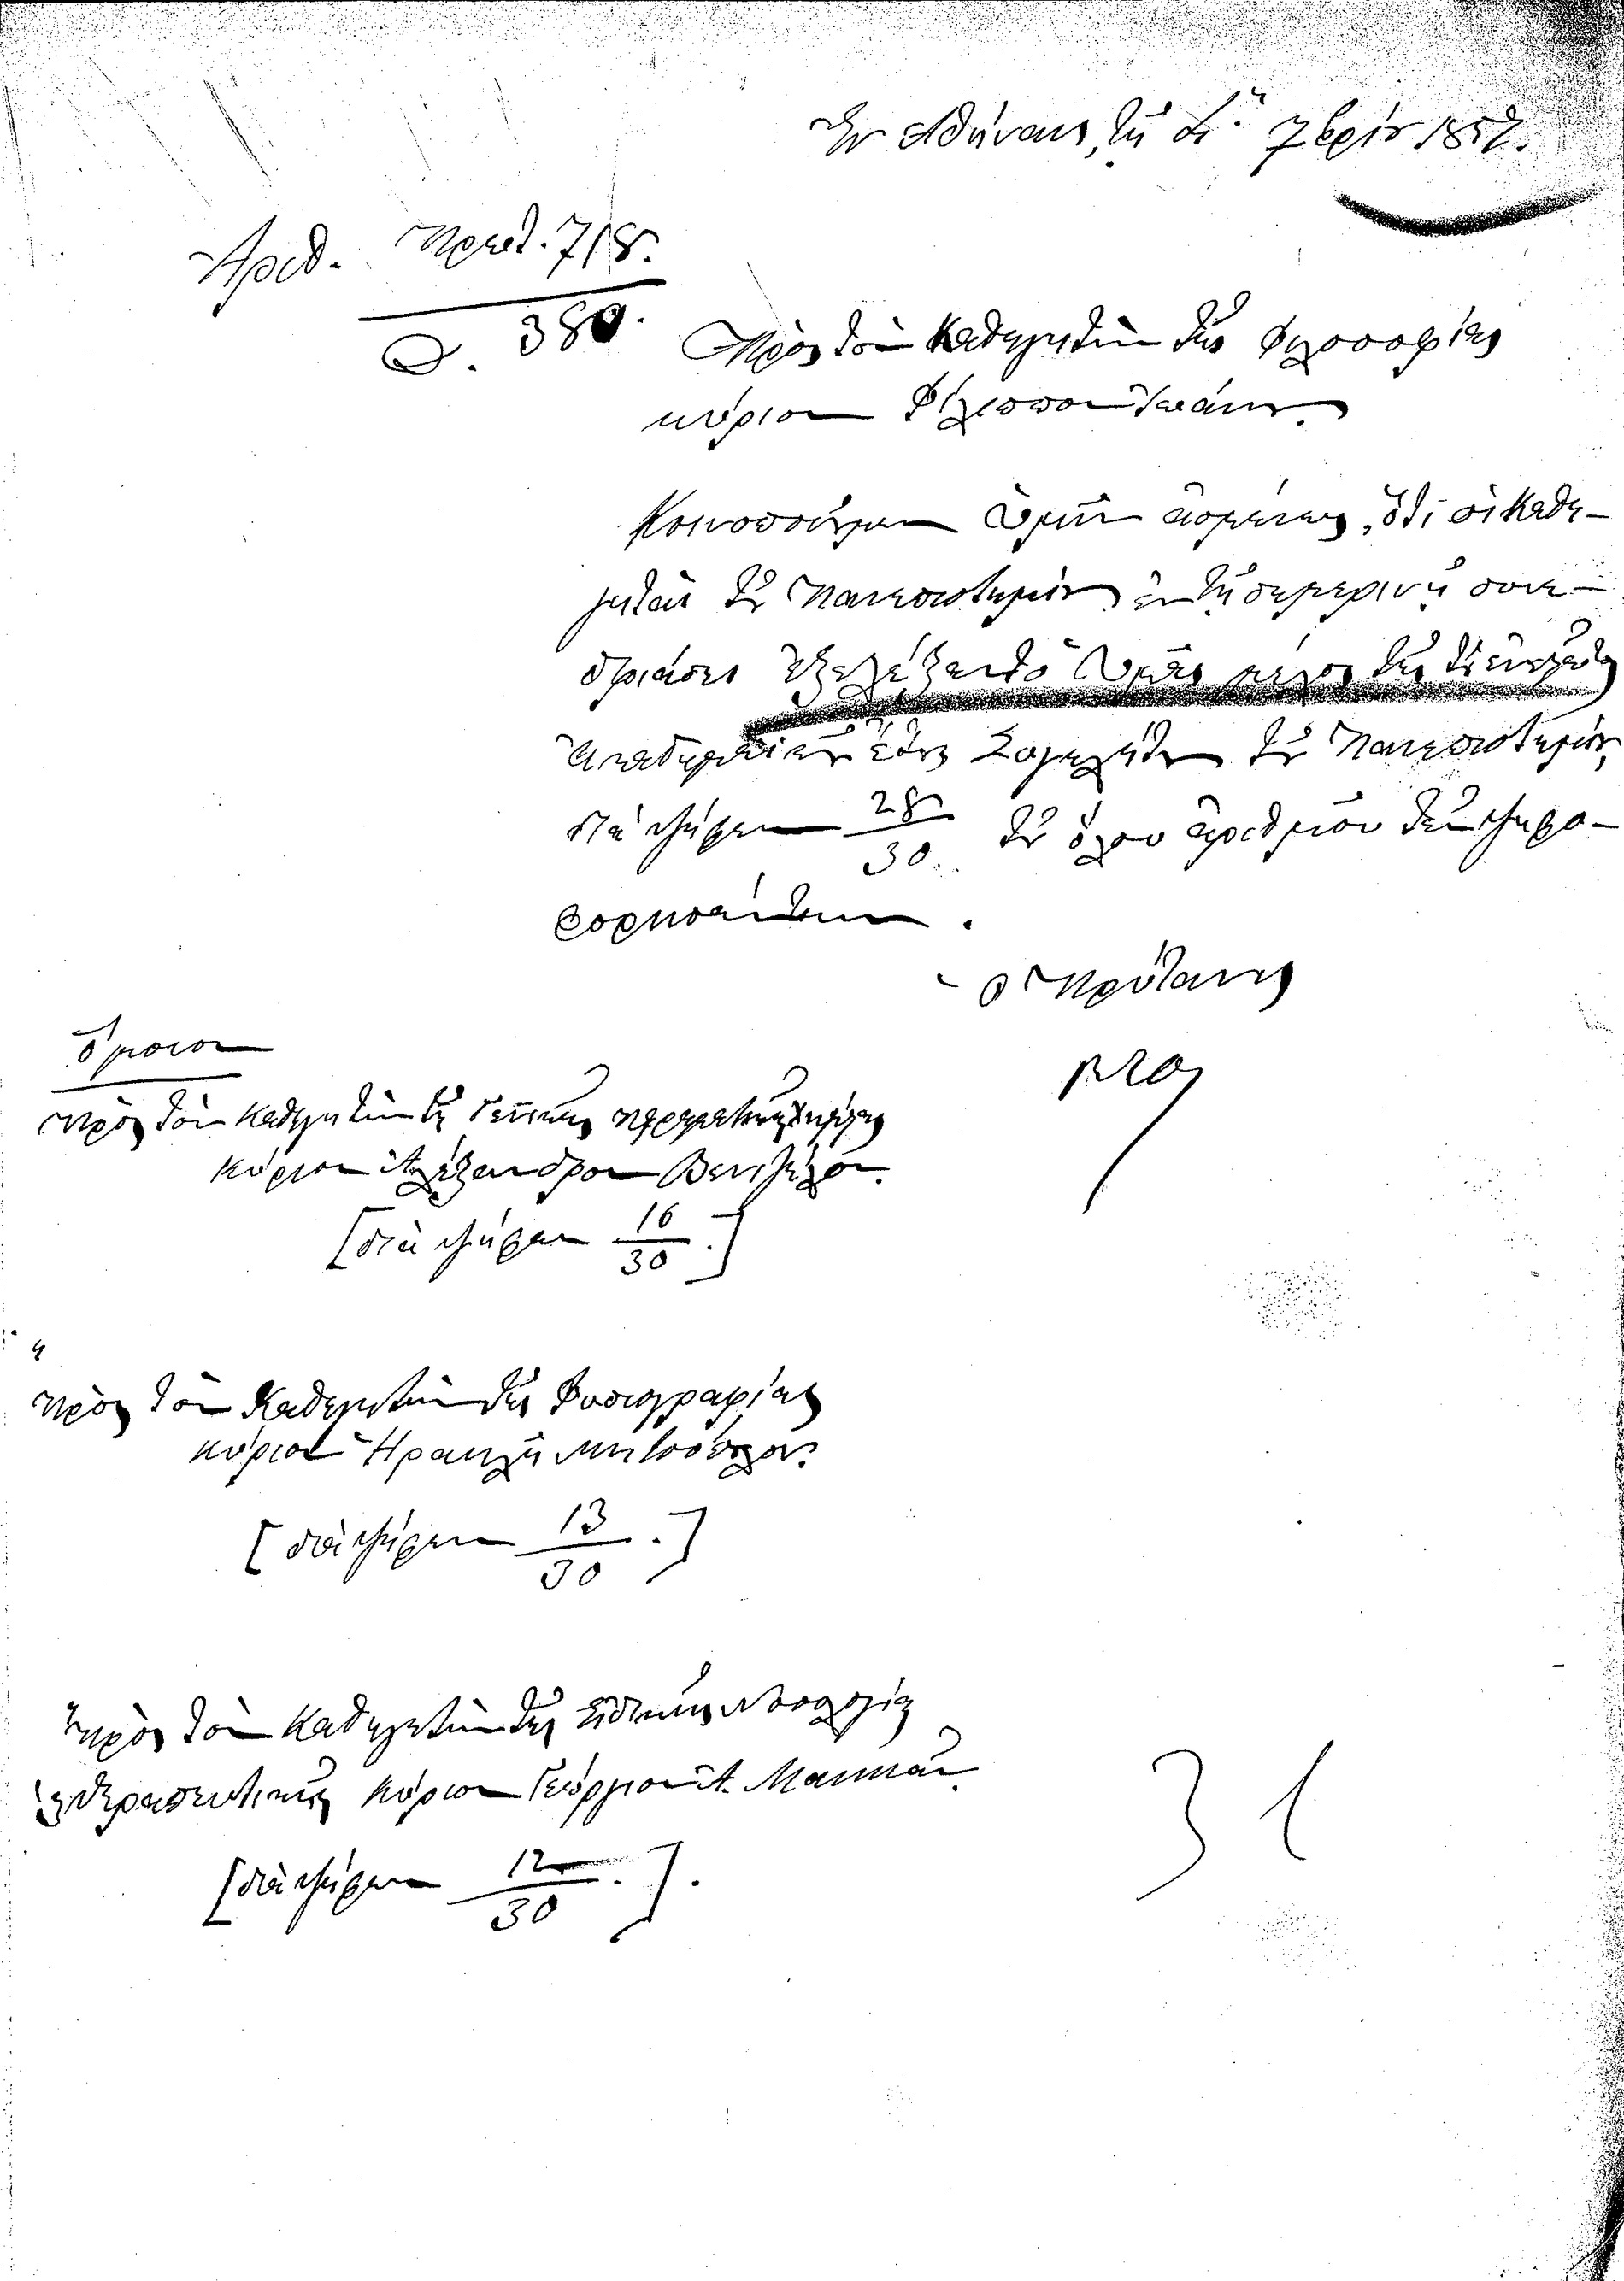 Ἐν Ἀθήναις, τῇ 7βρίου 1852.
Ἀριθ. Πρωτ. 718.
Δ. 380.
Πρὸς τὸν Καθηγητὴν τῆς Φιλοσοφίας
κύριον Φίλιππον Ἰωάννου.
Κοινοποιοῦμεν ὑμῖν ἀσμένως, ὅτι οἱ Καθη-
γηταὶ τοῦ Πανεπιστημίου ἐν τῇ σημερινῇ συνε-
δριάσει ἐξελέξαντο ὑμᾶς μέλος τῆς
Ἀκαδημαϊκὸν ἔτος Συγκλήτου τοῦ Πανεπιστημίου,
διὰ ψήφων 28/30 τοῦ ὅλου ἀριθμοῦ τῶν ψηφο-
φορησάντων.
Ὁ Πρύτανις
Ὅμοιον
Πρὸς τὸν Καθηγητὴν τῆς Γενικῆς πειραματικῆς Χημείας
κύριον Ἀλέξανδρον Βενιζέλον.
[διὰ ψήφων 16/30.]
Πρὸς τὸν Καθηγητὴν τῆς Φυσιογραφίας
κύριον Ἡρακλῆ Μητσόπουλον.
[διὰ ψήφων 13/30.]
Πρὸς τὸν Καθηγητὴν τῆς Εἰδικῆς Νοσολογίας
καὶ Θεραπευτικῆς κύριον Γεώργιον Ἀ. Μακκᾶν.
[διὰ ψήφων 12/30.].
31